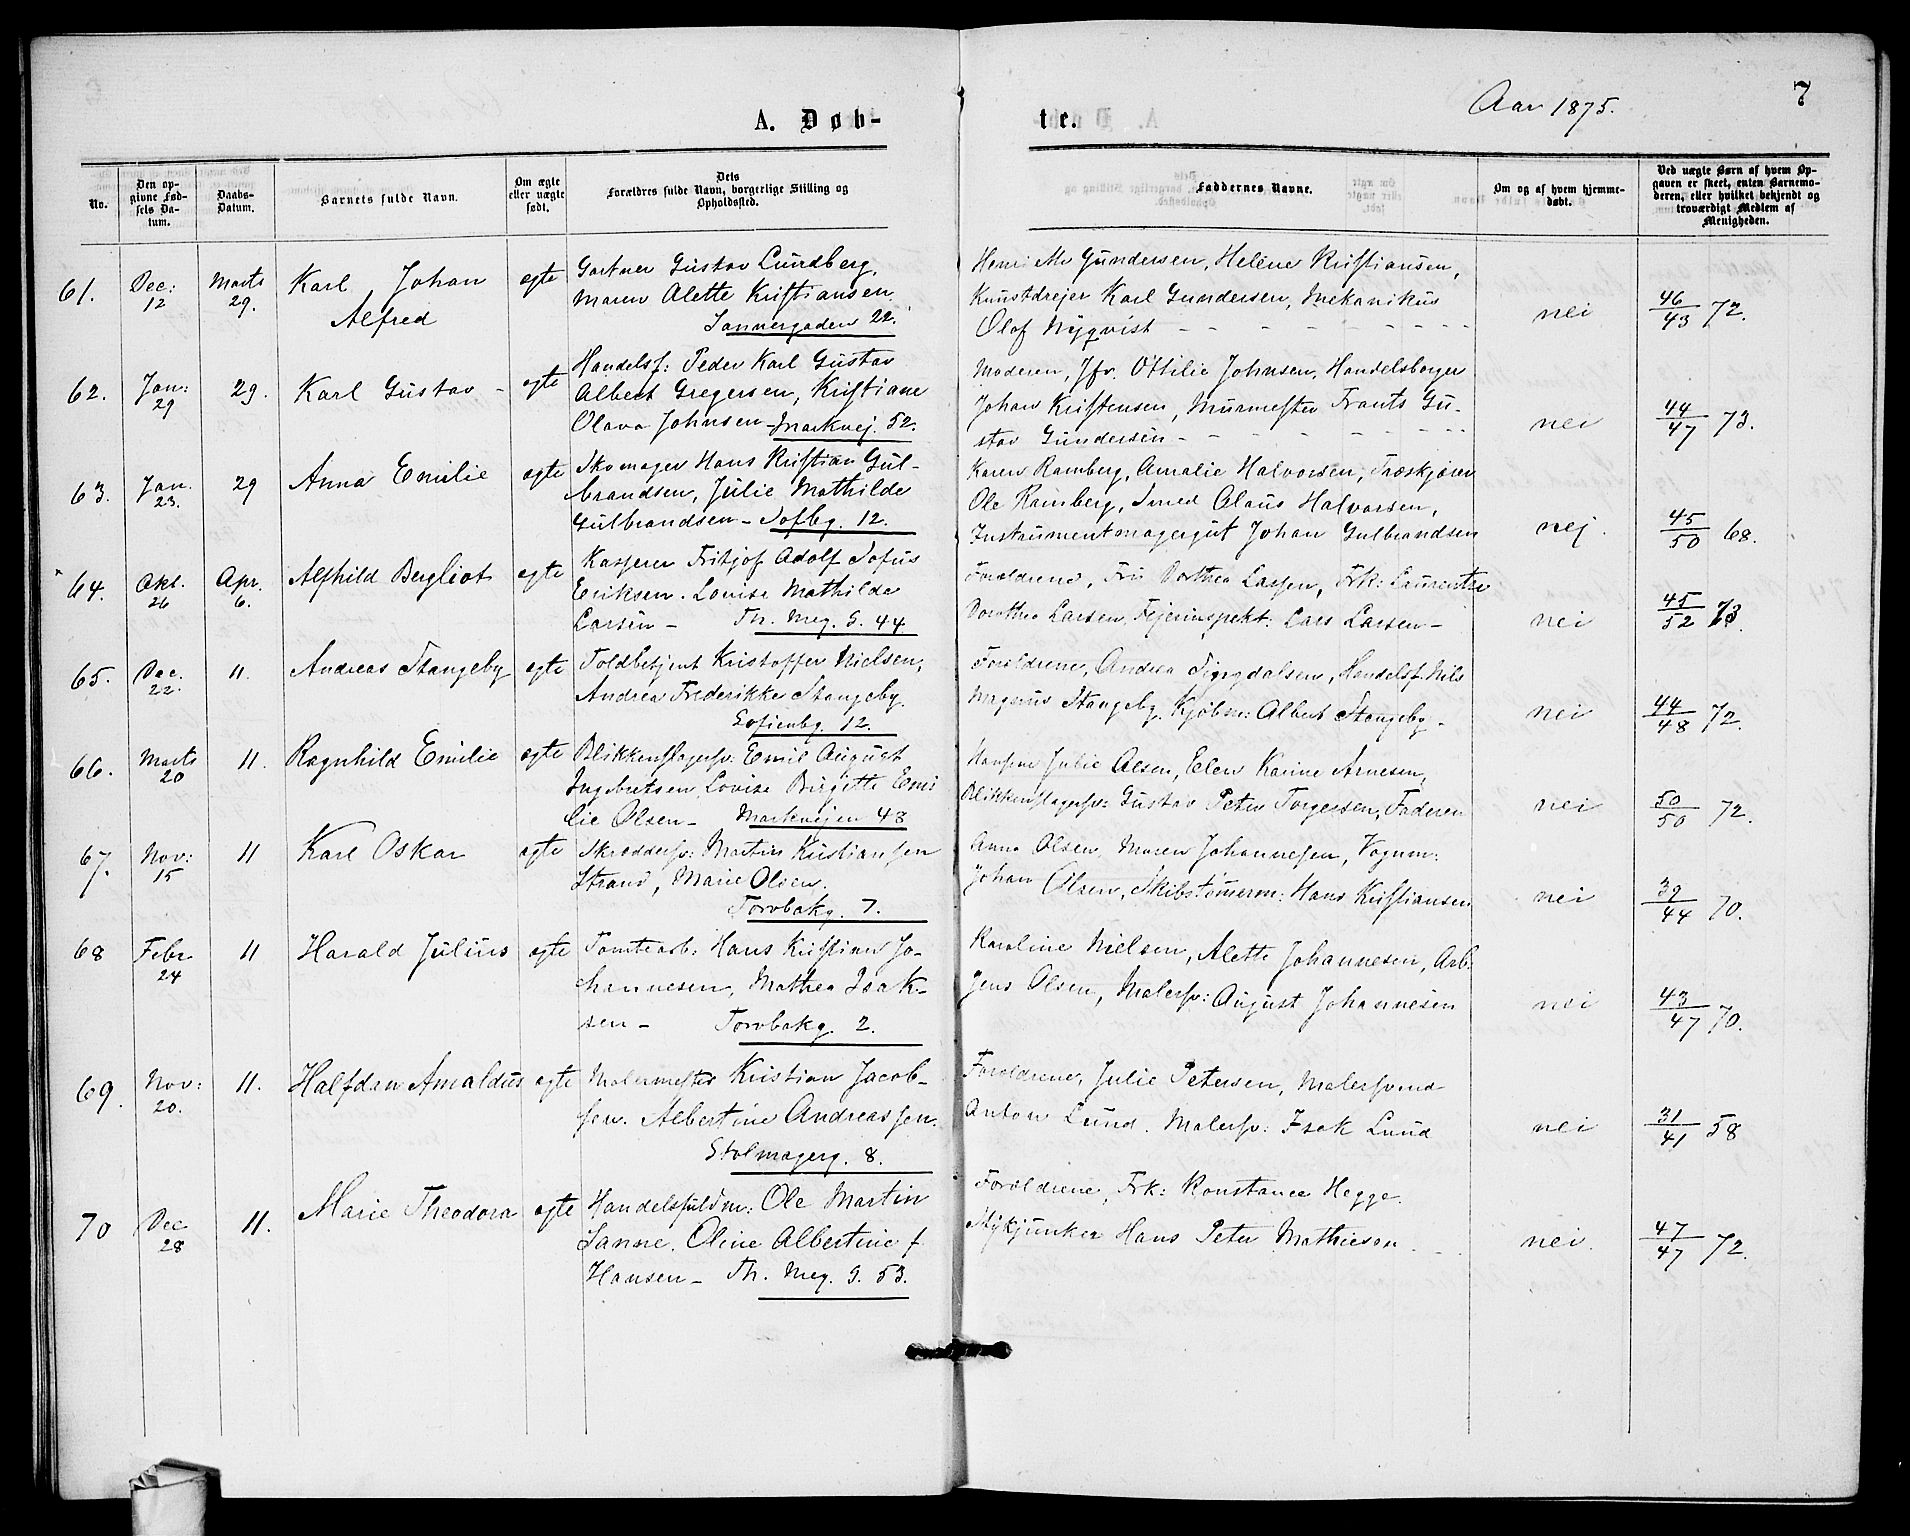 Aar 1875.
7
A. Døb-
te.
No.
Den op-
givne Fød-
sels Da-
tum.
Daabs-
Datum.
Barnets fulde Navn.
Om ægte
eller uægte
født.
Dets
Forældres fulde Navn, borgerlige Stilling og
Opholdssted.
Faddernes Navne.
Om og af hvem hjemme-
døbt.
Ved uægte Børn af hvem Op-
gaven er skeet, enten Barnemo-
deren, eller hvilket bekjendt og
troværdigt Medlem af
Menigheden.
61.
Dec:
12
Marts
29.
Karl Johan
Alfred
egte
Gartner Gustav Lundberg,
Maren Alette Kristiansen.
Sannergaden 22.
Gundersen, Helene Kristiansen,
Kunstdrejer Karl Gundersen, Mekanikus
Olof Nyqvist
nei
46/43 72.
62.
Jan:
29
29.
Karl Gustav -
egte
Handelsf: Peder Karl Gustav
Albert Gregersen, Kristiane
Olava Johnsen - Markvej. 52.
Moderen, Jfr. Ottilie Johnsen, Handelsborger
Johan Kristensen, Murmester Frants Gu-
stav Gundersen -
nei
44/47 73.
63.
Jan.
23.
29
Anna Emilie
egte
Skomager Hans Kristian Gul-
brandsen, Julie Mathilde
Gulbrandsen - Sofbg. 12.
Karen Ramberg, Amalie Halvorsen, Træskjærer
Ole Ramberg, Smed Claus Halvorsen,
Instrumentmagergut Johan Gulbrandsen
nej.
45/50 68.
64.
Okt.
26
Apr.
6.
Alfhild Bergliot
egte
Kasserer Fritjof Adolf Sofus
Eriksen. Lovise Mathilde
Larsen - Th. Meg. G. 44.
Forældrene, Fru Dorthea Larsen, Frk: Laurentze
Dorothea Larsen, Fejerinspekt: Lars Larsen -
nei
45/52 73.
65.
Dec.
22.
11.
Andreas Stangeby
egte
Toldbetjent Kristoffer Nielsen,
Andrea Frederikke Stangeby.
Sofienbg. 12.
Forældrene, Andrea Sigdalsen, Handelsf. Nils
Magnus Stangeby. Kjøbm: Albert Stangeby -
nei
44/48 72.
66.
Marts
20
11.
Ragnhild Emilie
egte
Blikkenslagersv: Emil August
Ingebretsen, Lovise Birgitte Emi
lie Olsen - Markvejen 48
Hansine Julie Olsen, Elen Karine Arnesen,
Blikkenslagersv: Gustav Peter Torgersen, Faderen
nei
50/50 72.
67.
Nov:
15
11
Karl Oskar
egte
Skræddersv: Martin Kristiansen
Strand, Marie Olsen.
Torvbakg. 7.
Anna Olsen, Maren Johannesen, Vognm:
Johan Olsen, Skibstømerm: Hans Kristiansen
nei
39/44 70.
68
Febr
24
11
Harald Julius
egte
Tomtearb: Hans Kristian Jo-
hannesen, Mathea Isak-
sen - Torvbakg. 2.
Karoline Nielsen, Alette Johannesen, Arb:
Jens Olsen, Malersv: August Johannesen
nei
43/47 70.
69.
Nov:
20.
11.
Halfdan Arnaldus
egte
Malermester Kristian Jacob-
sen. Albertine Andreassen.
Stolmagerg. 8.
Forældrene, Julie Petersen, Malersvend
Anton Lund. Malersv: Isak Lund
nei
31/41 58
70
Dec
28
11.
Marie Theodora
egte
Handelsfuldm: Ole Martin
Sanne. Oline Albertine f.
Hansen - Th. Meg. G. 53.
Forældrene, Frk: Konstance Hegge.
Stykjunker Hans Peter Mathiesen
nei.
47/47 72.